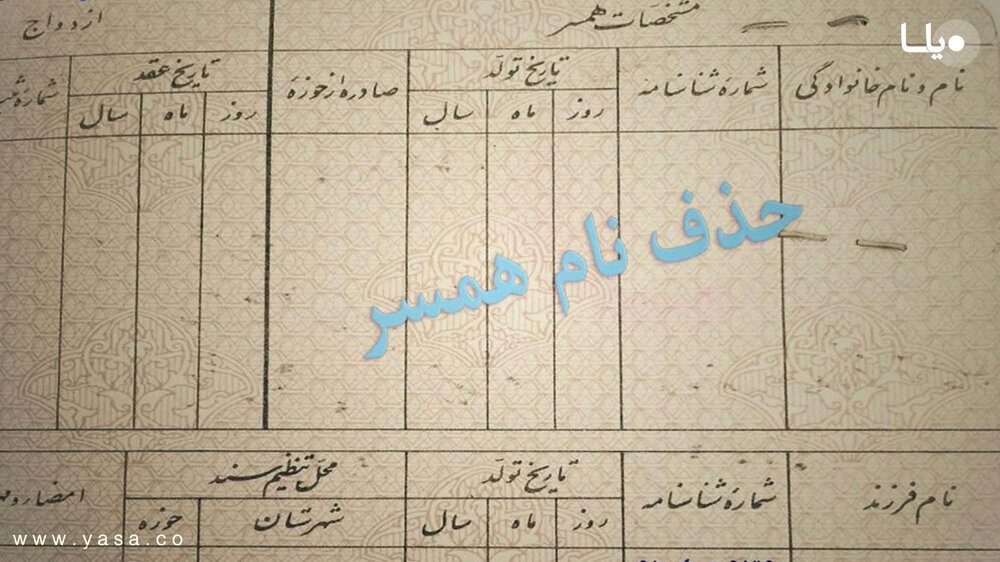 مشخصات همسر
ازدواج
یاسا
نام و نام خانوادگی شمارهٔ شناسنامه تاریخ تولد صادره از حوزهٔ تاریخ عقد
روز ماه سال روز ماه سال
حذف نام همسر
نام فرزند شمارهٔ شناسنامه تاریخ تولد محل تنظیم سند
روز ماه سال شهرستان حوزه
www.yasa.co